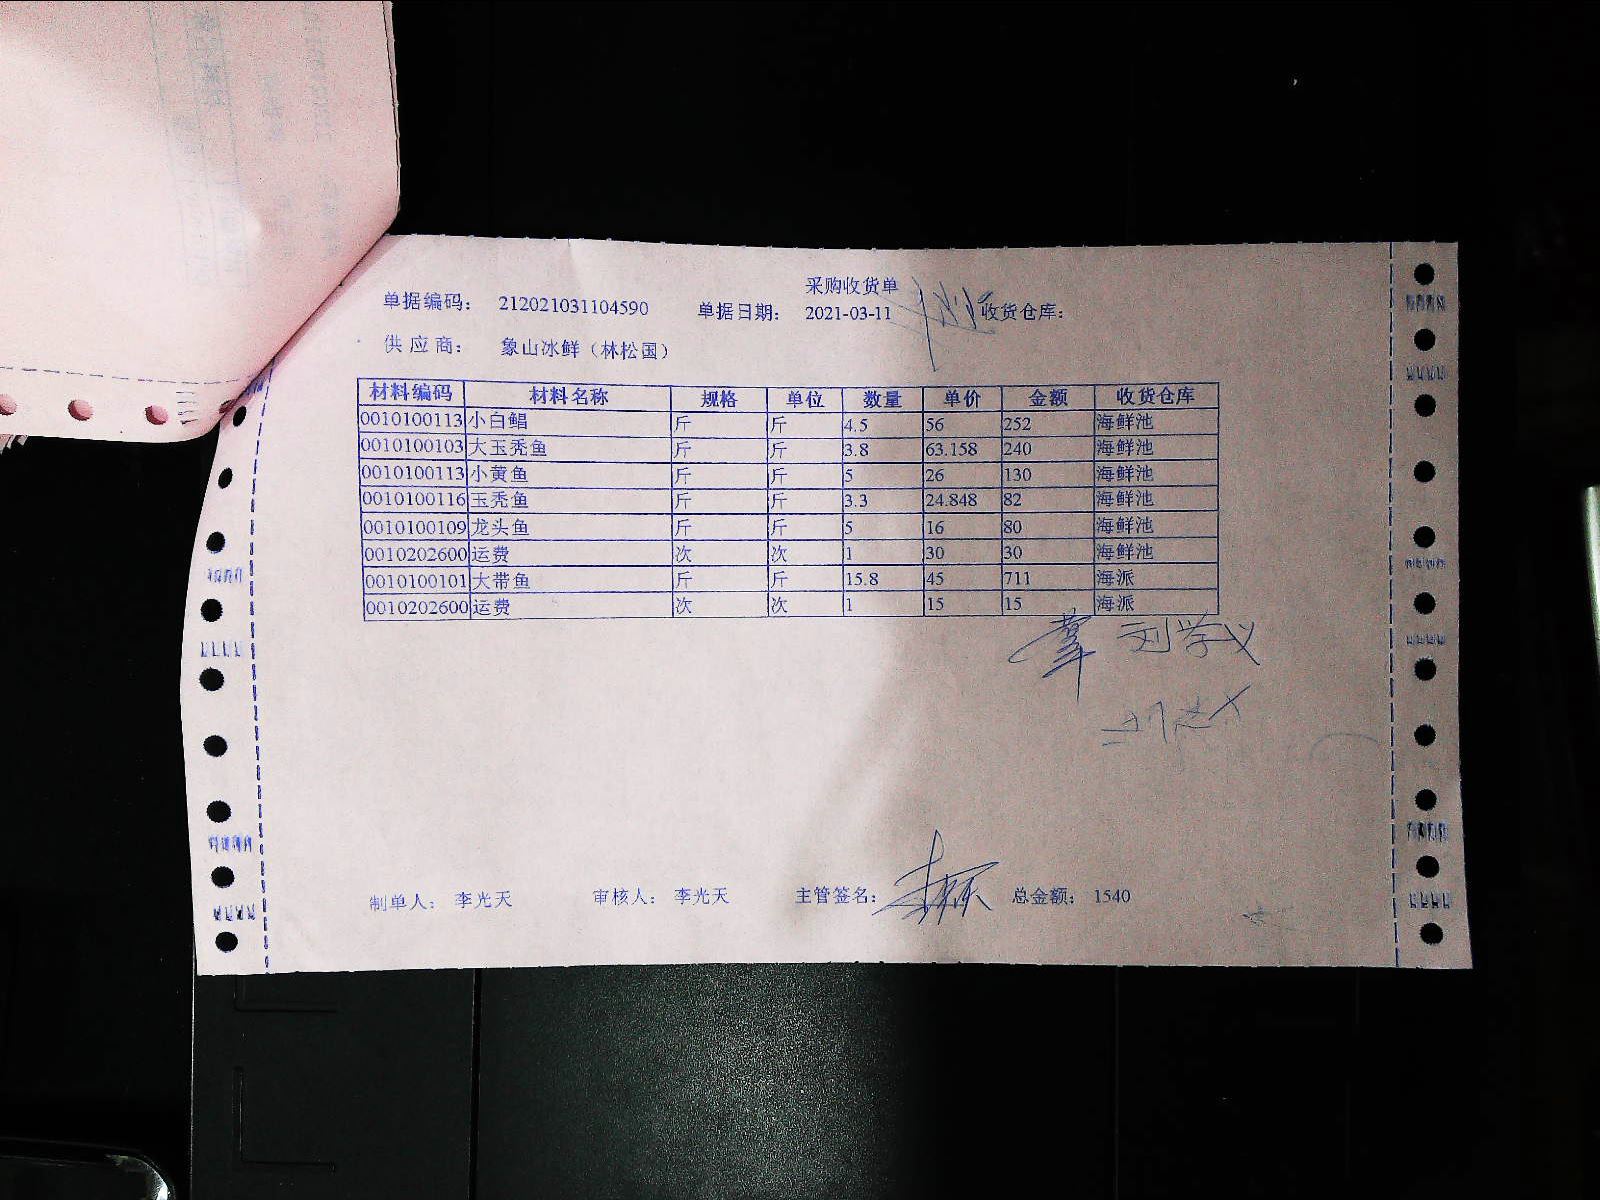 采购收货单
单据编码： 212021031104590 单据日期： 2021-03-11 收货仓库：
供 应 商： 象山冰鲜（林松国）
材料编码 材料名称 规格 单位 数量 单价 金额 收货仓库
0010100113 小白鲳 斤 斤 4.5 56 252 海鲜池
0010100103 大玉秃鱼 斤 斤 3.8 63.158 240 海鲜池
0010100113 小黄鱼 斤 斤 5 26 130 海鲜池
0010100116 玉秃鱼 斤 斤 3.3 24.848 82 海鲜池
0010100109 龙头鱼 斤 斤 5 16 80 海鲜池
0010202600 运费 次 次 1 30 30 海鲜池
0010100101 大带鱼 斤 斤 15.8 45 711 海派
0010202600 运费 次 次 1 15 15 海派
刘学义
制单人： 李光天 审核人： 李光天 主管签名： 总金额： 1540